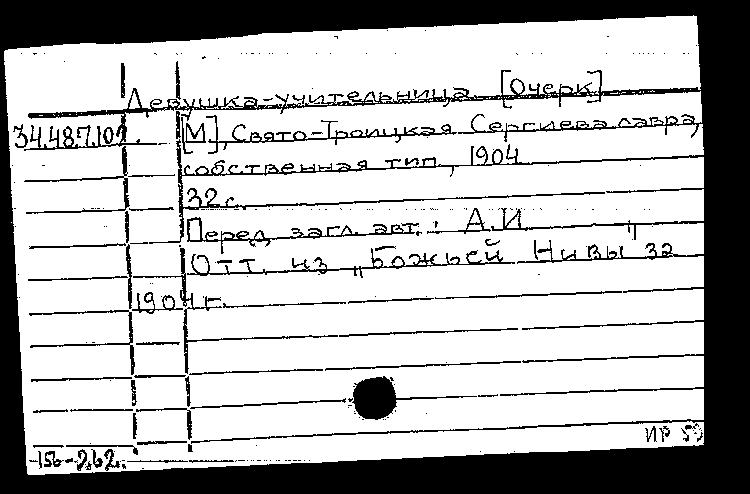 Девушка-учительница. [Очерк]
34.48.7.101. [М], Свято-Троицкая Сергиева лавра,
собственная тип., 1904
32 с.
Перед загл. авт.: А.И.
Отт. из „Божьей Нивы" за
1904 г.
ИР 59
-156-2.62г.